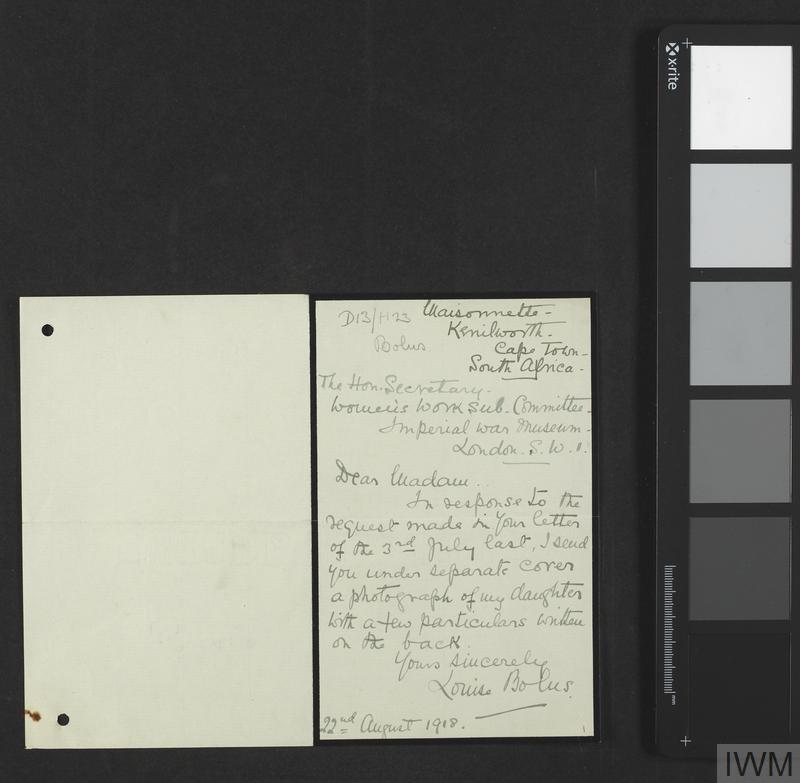 D13/1123
Bolus
Maisonnette -
Kenilworth -
Cape Town -
South Africa -
The Hon. Secretary -
Women's Work Sub-Committee -
Imperial War Museum -
London. S. W. 1.
Dear Madam.
In response to the
request made in your letter
of the 3rd July last, I send
you under separate cover
a photograph of my daughter
with a few particulars written
on the back.
Yours sincerely
Louise Bolus.
22nd August 1918.
x-rite
mm
IWM